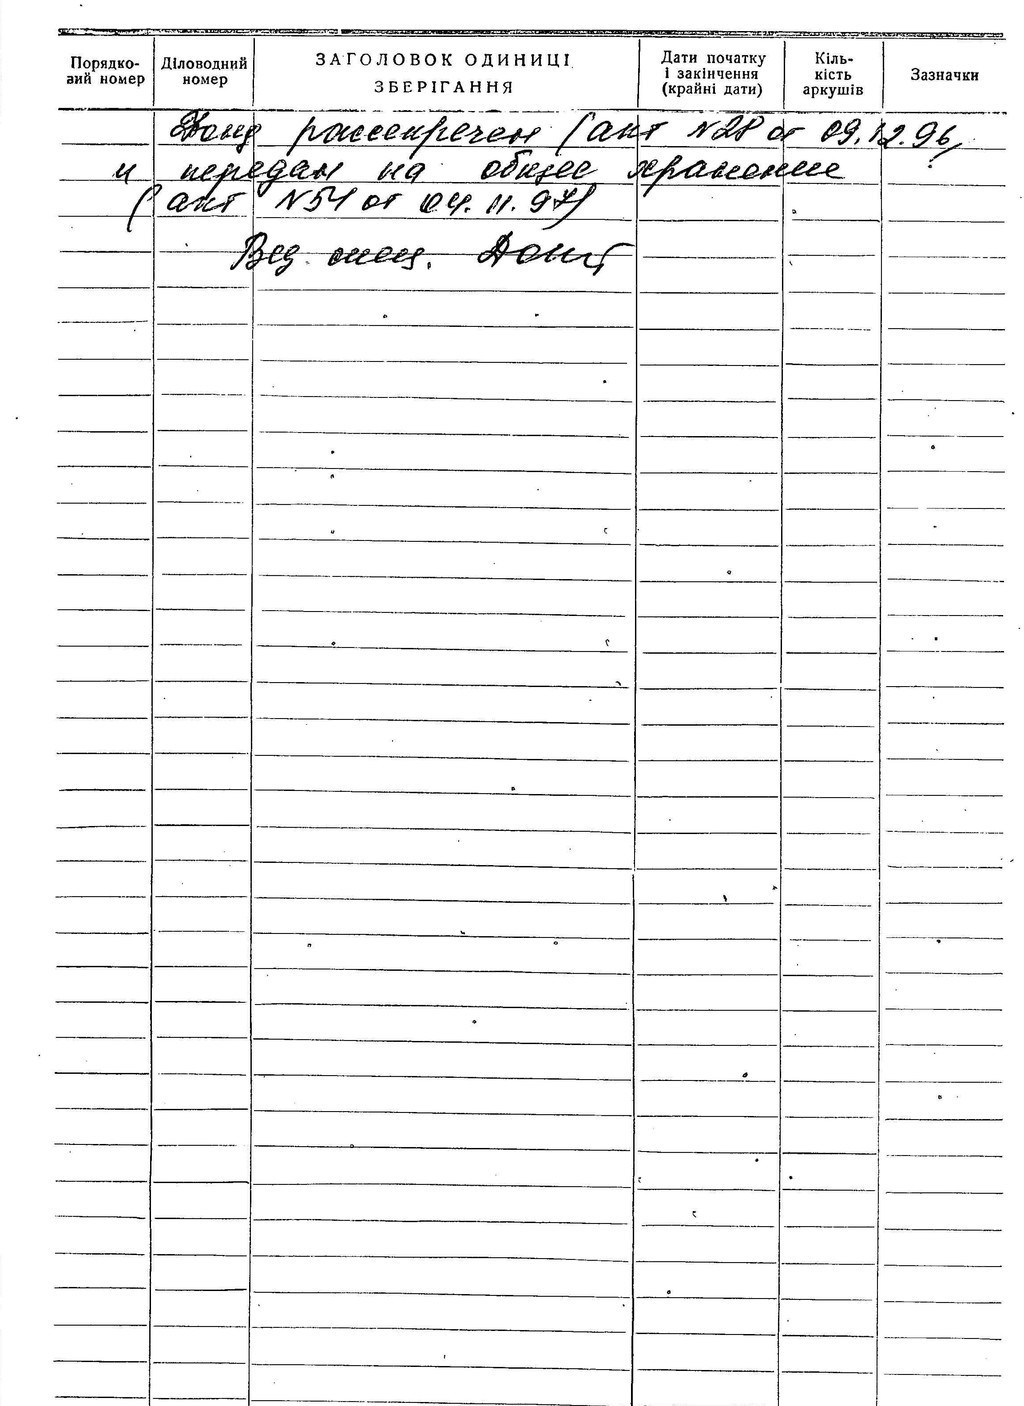 Порядко-
вий номер
Діловодний
номер
ЗАГОЛОВОК ОДИНИЦІ
ЗБЕРІГАННЯ
Дати початку
і закінчення
(крайні дати)
Кіль-
кість
аркушів
Зазначки
Фонд рассекречен (акт №28 от 09.12.96)
и передан на общее хранение
(акт №51 от 04.11.97)
Вед. спец.